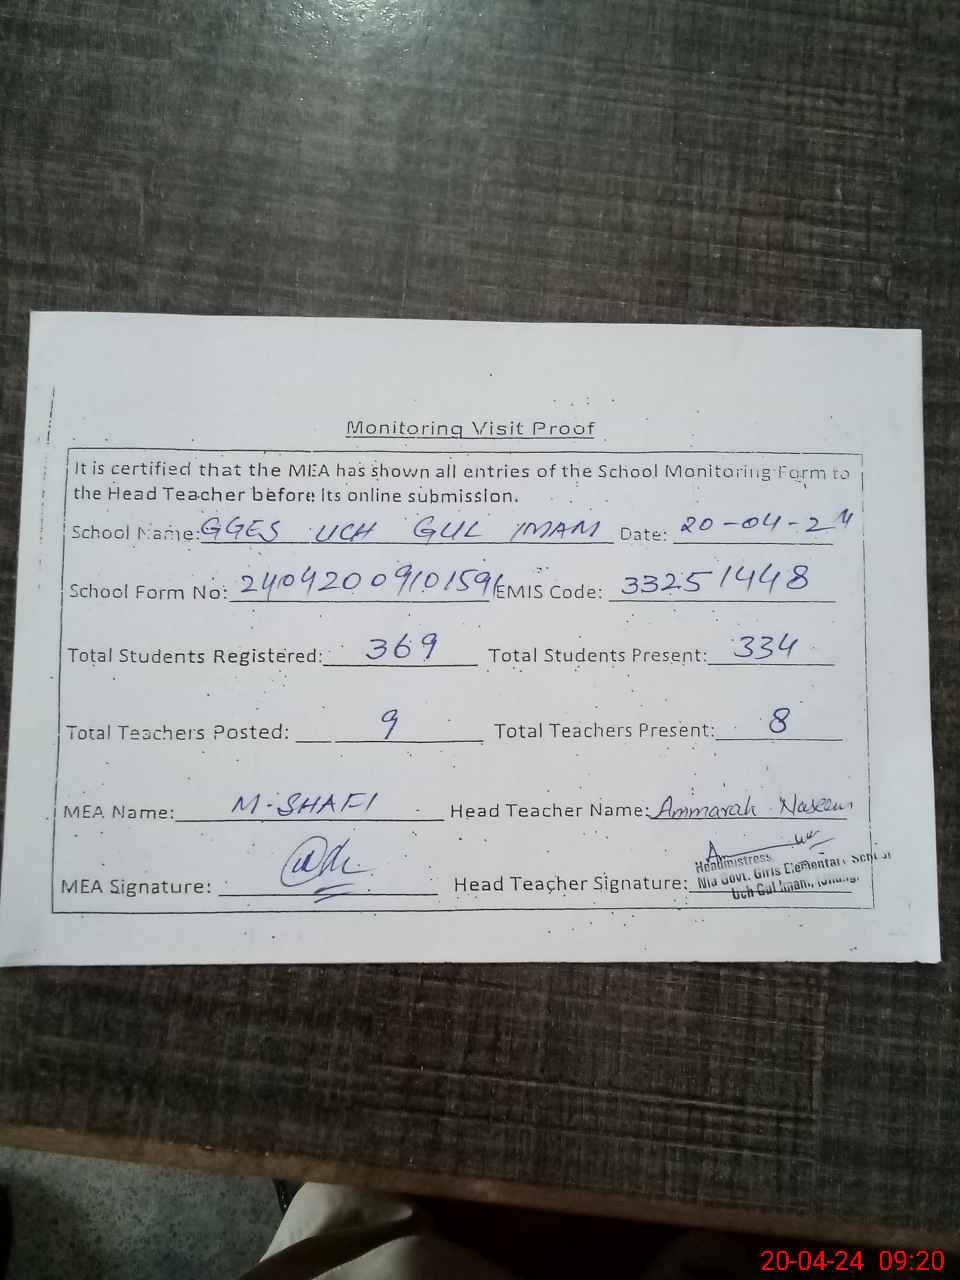 Monitoring Visit Proof
It is certified that the MEA has shown all entries of the School Monitoring Form to
the Head Teacher before its online submission.
School Name: GGES UCH GUL IMAM Date: 20-04-24
School Form No: 24042009101596 EMIS Code: 33251448
Total Students Registered: 369 Total Students Present: 334
Total Teachers Posted: 9 Total Teachers Present: 8
MEA Name: M-SHAFI Head Teacher Name: Ammarah Naseem
MEA Signature: Head Teacher Signature:
Headmistress
Govt. Girls Elementary School
Uch Gul Imam,
20-04-24 09:20